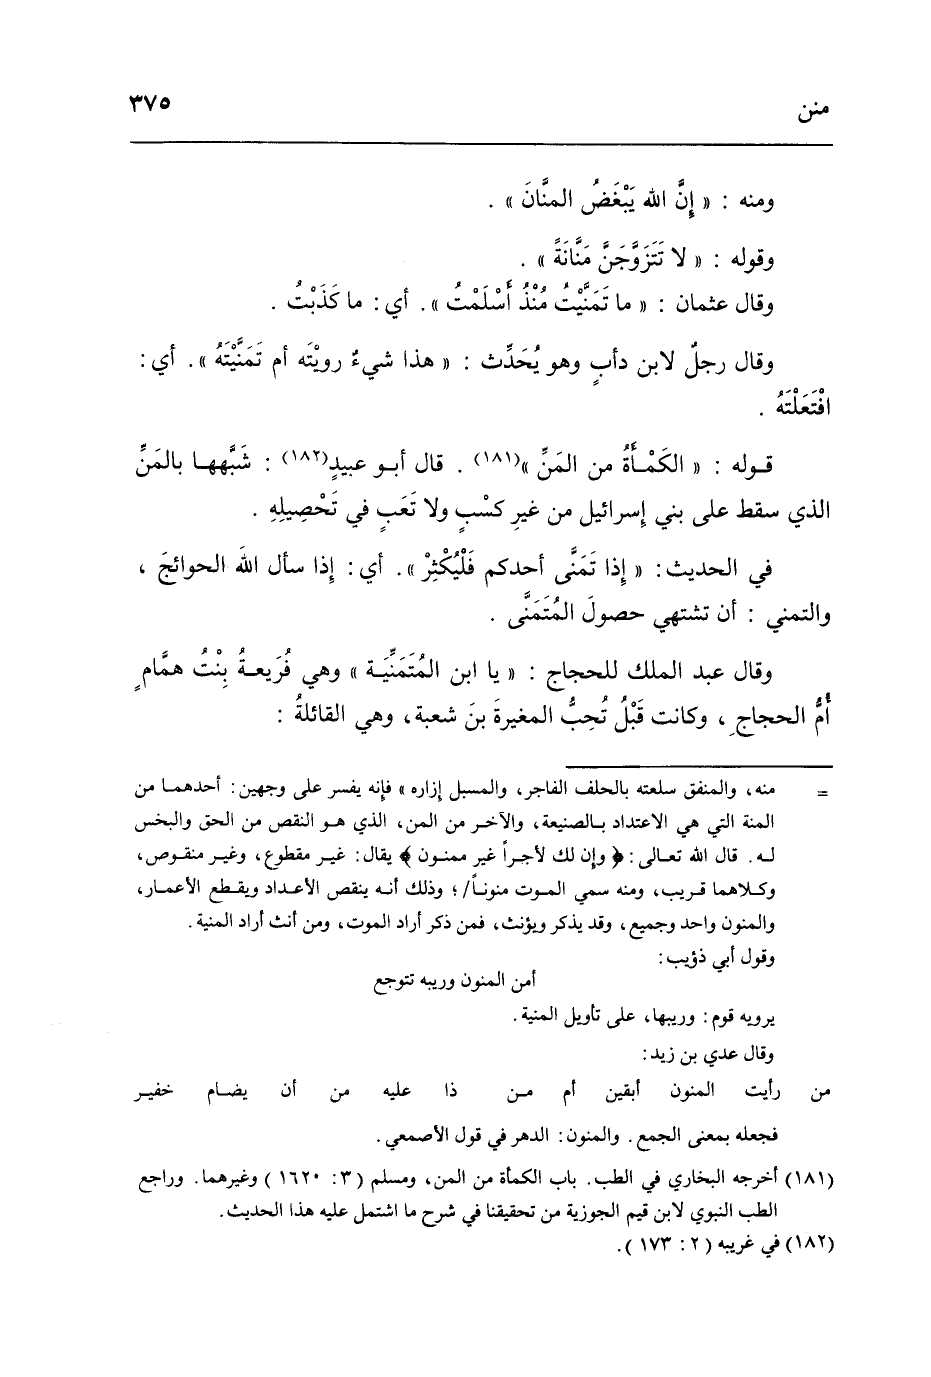 منن ٣٧٥
ومنه : « إِنَّ الله يَبْغَضُ المنَّانَ » .
وقوله : « لا تَتَزَوَّجَنَّ مَنَّانَةً » .
وقال عثمان : « ما تَمَنَّيْتُ مُنْذُ أَسْلَمْتُ ». أي : ما كَذَبْتُ .
وقال رجلٌ لابن دأبٍ وهو يُحَدِّث : « هذا شيءٌ رويْتَه أم تَمَنَّيْتَهُ ». أي :
افْتَعَلْتَهُ .
قـوله : « الكَمْـأَةُ من المَنِّ »(١٨١) . قال أبـو عبيدٍ(١٨٢) : شَبَّههـا بالمَنِّ
الذي سقط على بني إسرائيل من غيرِ كسْبٍ ولا تَعَبٍ في تَحْصِيلِهِ .
في الحديث : « إِذا تَمَنَّى أحدكم فَلْيُكْثِرْ ». أي : إِذا سأل اللهَ الحوائجَ ،
والتمني : أن تشتهي حصولَ المُتَمَنَّى .
وقال عبد الملك للحجاج : « يا ابن المُتَمَنِّيَـة » وهي فُرَيعـةُ بِنْتُ همَّامٍ
أُمُّ الحجاجِ ، وكانت قَبْلُ تُحِبُّ المغيرةَ بنَ شعبة ، وهي القائلةُ :
= منه، والمنفق سلعته بالحلف الفاجر، والمسبل إزاره » فإنه يفسر على وجهين : أحدهمـا من
المنة التي هي الاعتداد بـالصنيعة، والآخـر من المن، الذي هـو النقص من الحق والبخس
لـه . قال الله تعـالى : ﴿ وإن لك لأجـراً غير ممنـون ﴾ يقال : غيـر مقطوع، وغيـر منقـوص،
وكـلاهما قـريب، ومنه سمي المـوت منونـاً/؛ وذلك أنـه ينقص الأعـداد ويقـطع الأعمـار،
والمنون واحد وجميع، وقد يذكر ويؤنث، فمن ذكر أراد الموت، ومن أنث أراد المنية .
وقول أبي ذؤيب :
أمن المنون وريبه تتوجع
يرويه قوم : وريبها، على تأويل المنية .
وقال عدي بن زيد :
من رأيت المنون أبقين أم مـن ذا عليه من أن يضـام خفيـر
فجعله بمعنى الجمع . والمنون : الدهر في قول الأصمعي .
(١٨١) أخرجه البخاري في الطب . باب الكمأة من المن، ومسلم ( ٣ : ١٦٢٠ ) وغيرهما . وراجع
الطب النبوي لابن قيم الجوزية من تحقيقنا في شرح ما اشتمل عليه هذا الحديث .
(١٨٢) في غريبه ( ٢ : ١٧٣ ) .